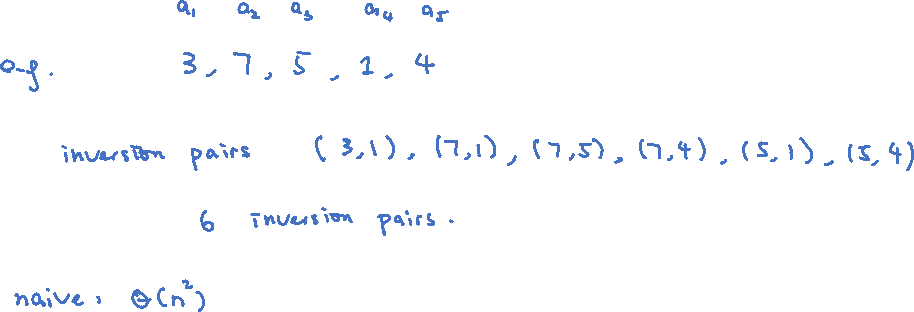 a₁ a₂ a₃ a₄ a₅
e.g. 3, 7, 5, 1, 4
inversion pairs (3,1), (7,1), (7,5), (7,4), (5,1), (5,4)
6 inversion pairs.
naive: Θ(n²)